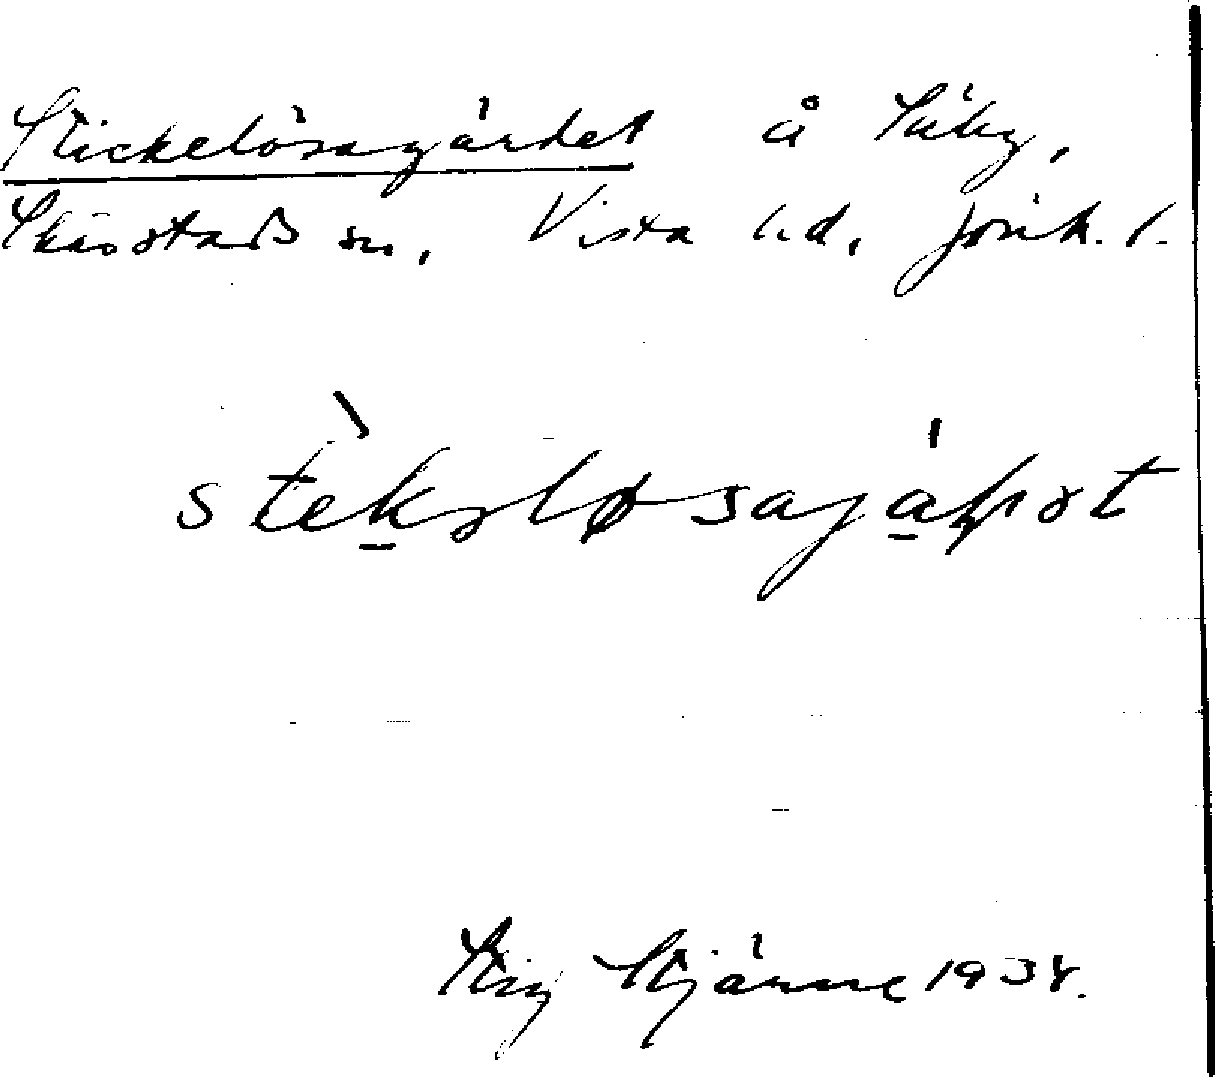 Stickelösagärdet å Säby,
Skärstads sn, Vista hd, Jönk. l.
stekəløsajaʰət
Stig Stjärne 1934.